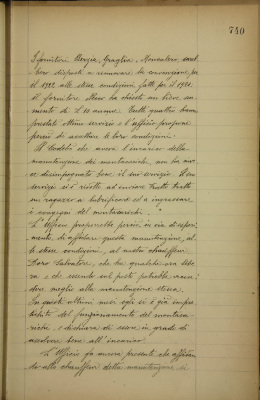 740
I fornitori Borgia, Graglia, Moncalvo, sareb-
bero disposti a rinnovare la convenzione per
il 1922 alle stesse condizioni fatte per il 1921.
il fornitore ha chiesto un lieve au-
mento di L. annue. Tutti quattro hanno
prestato ottimo servizio e l'ufficio propone
perciò di accettare le loro condizioni.
Il che aveva l'incarico della
manutenzione dei montacarichi, non ha mai
disimpegnato bene il suo servizio. Il suo
servizio si è ridotto ad inviare tratto tratto
un ragazzo a lubrificare ed a ingrassare
i congegni del montacarichi.
L'Ufficio proporrebbe perciò, in via di esperi-
mento, di affidare questa manutenzione, al-
le stesse condizioni, al nostro chauffeur
Salvatore, che ha qualità
e che essendo sul posto potrebbe acudi-
dire meglio alla manutenzione stessa.
In questi ultimi mesi egli si è già impra-
tichito del funzionamento del montaca-
richi, e dichiara di essere in grado di
assolvere bene all'incarico.
L'Ufficio fa ancora presente che affidan-
do allo chauffeur della manutenzione si